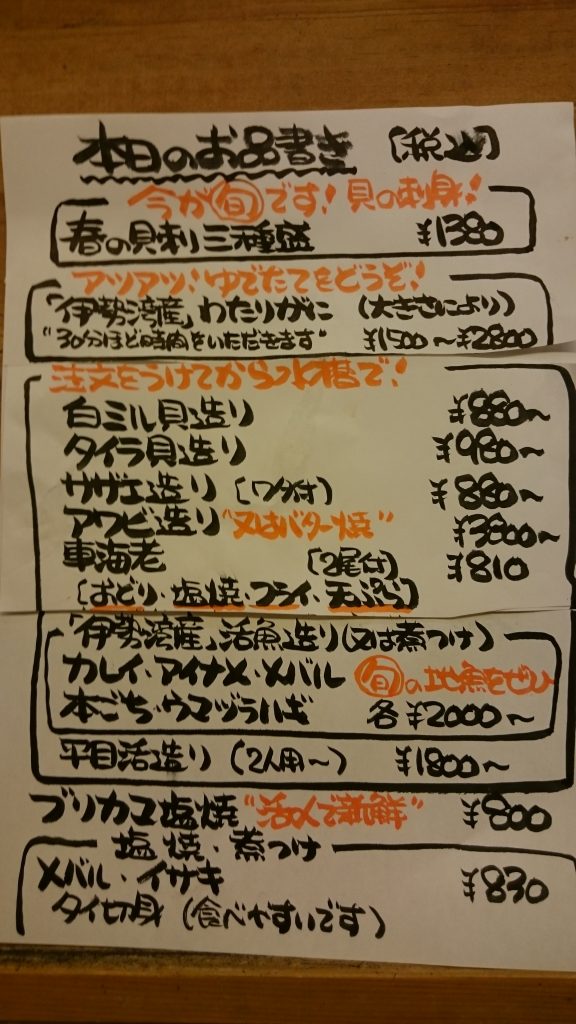 本日のお品書き [税込]
今が旬です!貝の刺身!
春の貝刺し三種盛 ¥1380
アツアツ!ゆでたてをどうぞ!
「伊勢湾産」わたりがに (大きさにより)
"30分ほど時間をいただきます" ¥1500〜¥2800
注文をうけてから水槽で!
白ミル貝造り ¥880〜
タイラ貝造り ¥980〜
サザエ造り [ワタ付] ¥880〜
アワビ造り"又はバター焼" ¥3800〜
車海老 [2尾付] ¥810
[おどり・塩焼・フライ・天ぷら]
「伊勢湾産」活魚造り(又は煮つけ)
カレイ・アイナメ・メバル 旬の地魚をぜひ
本ごち・ウマヅラハギ 各¥2000〜
平目活造り (2人用〜) ¥1800〜
ブリカマ塩焼 "活〆で新鮮" ¥800
塩焼・煮つけ
メバル・イサキ ¥830
タイ切身 (食べやすいです)